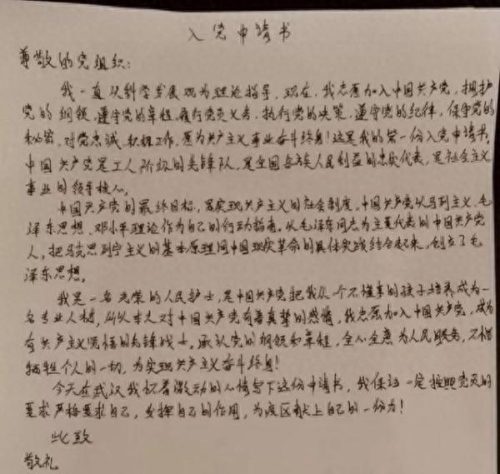 入党申请书
尊敬的党组织:
我一直以科学发展观为理论指导,现在,我志愿加入中国共产党,拥护
党的纲领,遵守党的章程,履行党员义务,执行党的决策,遵守党的纪律,保守党的
秘密,对党忠诚,积极工作,愿为共产主义事业奋斗终身!这是我的第一份入党申请书。
中国共产党是工人阶级的先锋队,是全国各族人民利益的忠实代表,是社会主义
事业的领导核心。
中国共产党的最终目标,是实现共产主义的社会制度。中国共产党以马列主义,毛
泽东思想,邓小平理论作为自己的行动指南。以毛泽东同志为主要代表的中国共产党
人,把马克思列宁主义的基本原理同中国现实革命的具体实践结合起来,创立了毛
泽东思想。
我是一名光荣的人民护士,是中国共产党把我从一个不懂事的孩子培养成为一
名专业人材,所以本人对中国共产党有着真挚的感情,我志愿加入中国共产党,成为
有共产主义觉悟的先锋战士。承认党的纲领和章程,全心全意为人民服务,不惜
牺牲个人的一切,为实现共产主义奋斗终身!
今天在武汉我怀着激动的心情写下这份申请书,我保证一定按照党员的
要求严格要求自己,发挥自己的作用,为疫区献上自己的一份力!
此致
敬礼